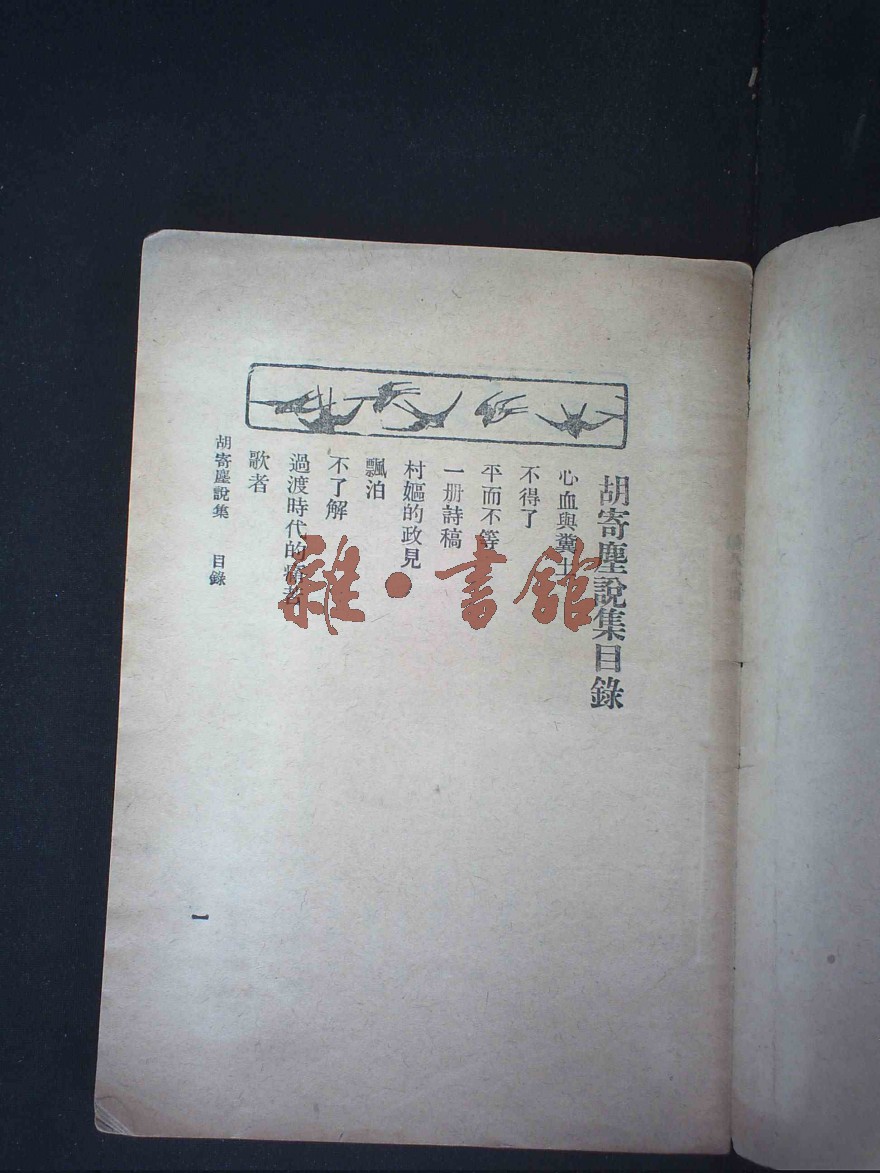 胡寄塵說集目錄
心血與糞土
不得了
平而不等
一册詩稿
村嫗的政見
飄泊
不了解
過渡時代的
歌者
胡寄塵說集 目錄
一
雜·書館